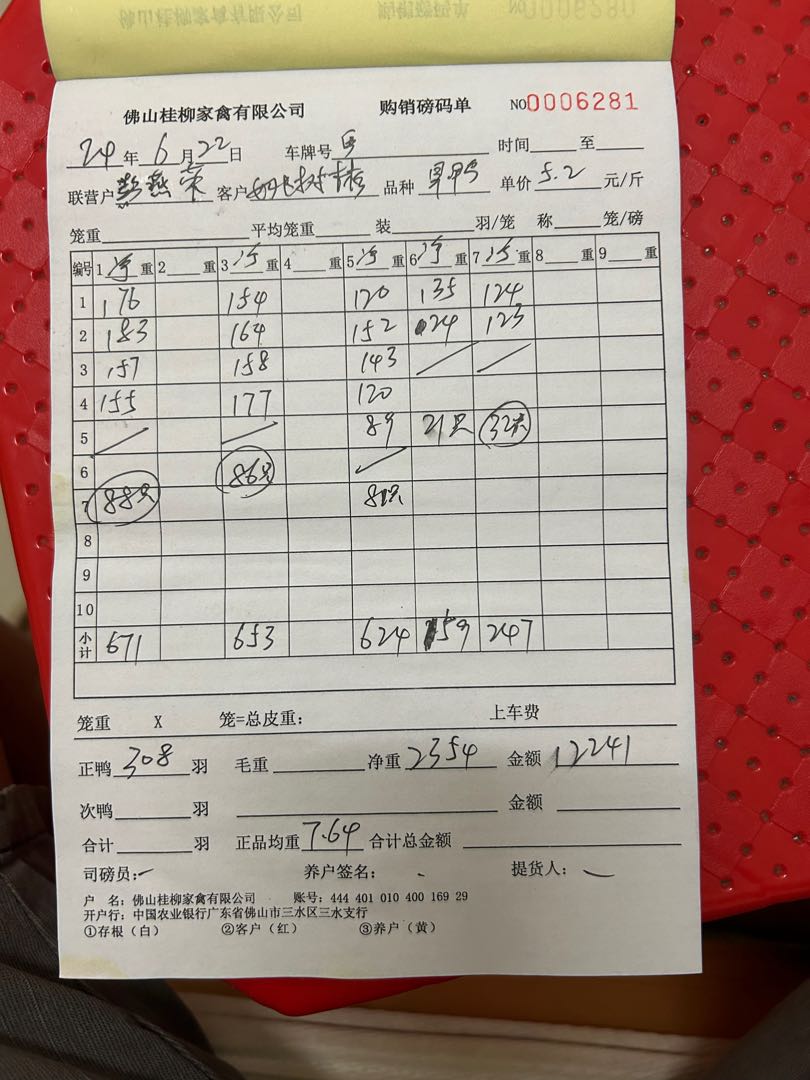 佛山桂柳家禽有限公司 购销磅码单 NO0006281
24年6月22日 车牌号 时间 至
联营户 客户 品种 单价5.2元/斤
笼重 平均笼重 装 羽/笼 称 笼/磅
编号 1净重 2重 3净重 4重 5净重 6净重 7净重 8重 9重
1 176 154 120 135 124
2 183 164 152 24 123
3 157 158 143
4 155 177 120
5 89 21只 32只
6 86只
7 88只 81只
8
9
10
小计 671 653 624 159 247
笼重 X 笼=总皮重： 上车费
正鸭308羽 毛重 净重2354 金额12241
次鸭 羽 金额
合计 羽 正品均重7.64 合计总金额
司磅员： 养户签名： 提货人：
户 名：佛山桂柳家禽有限公司 账号：444 401 010 400 169 29
开户行：中国农业银行广东省佛山市三水区三水支行
①存根（白） ②客户（红） ③养户（黄）